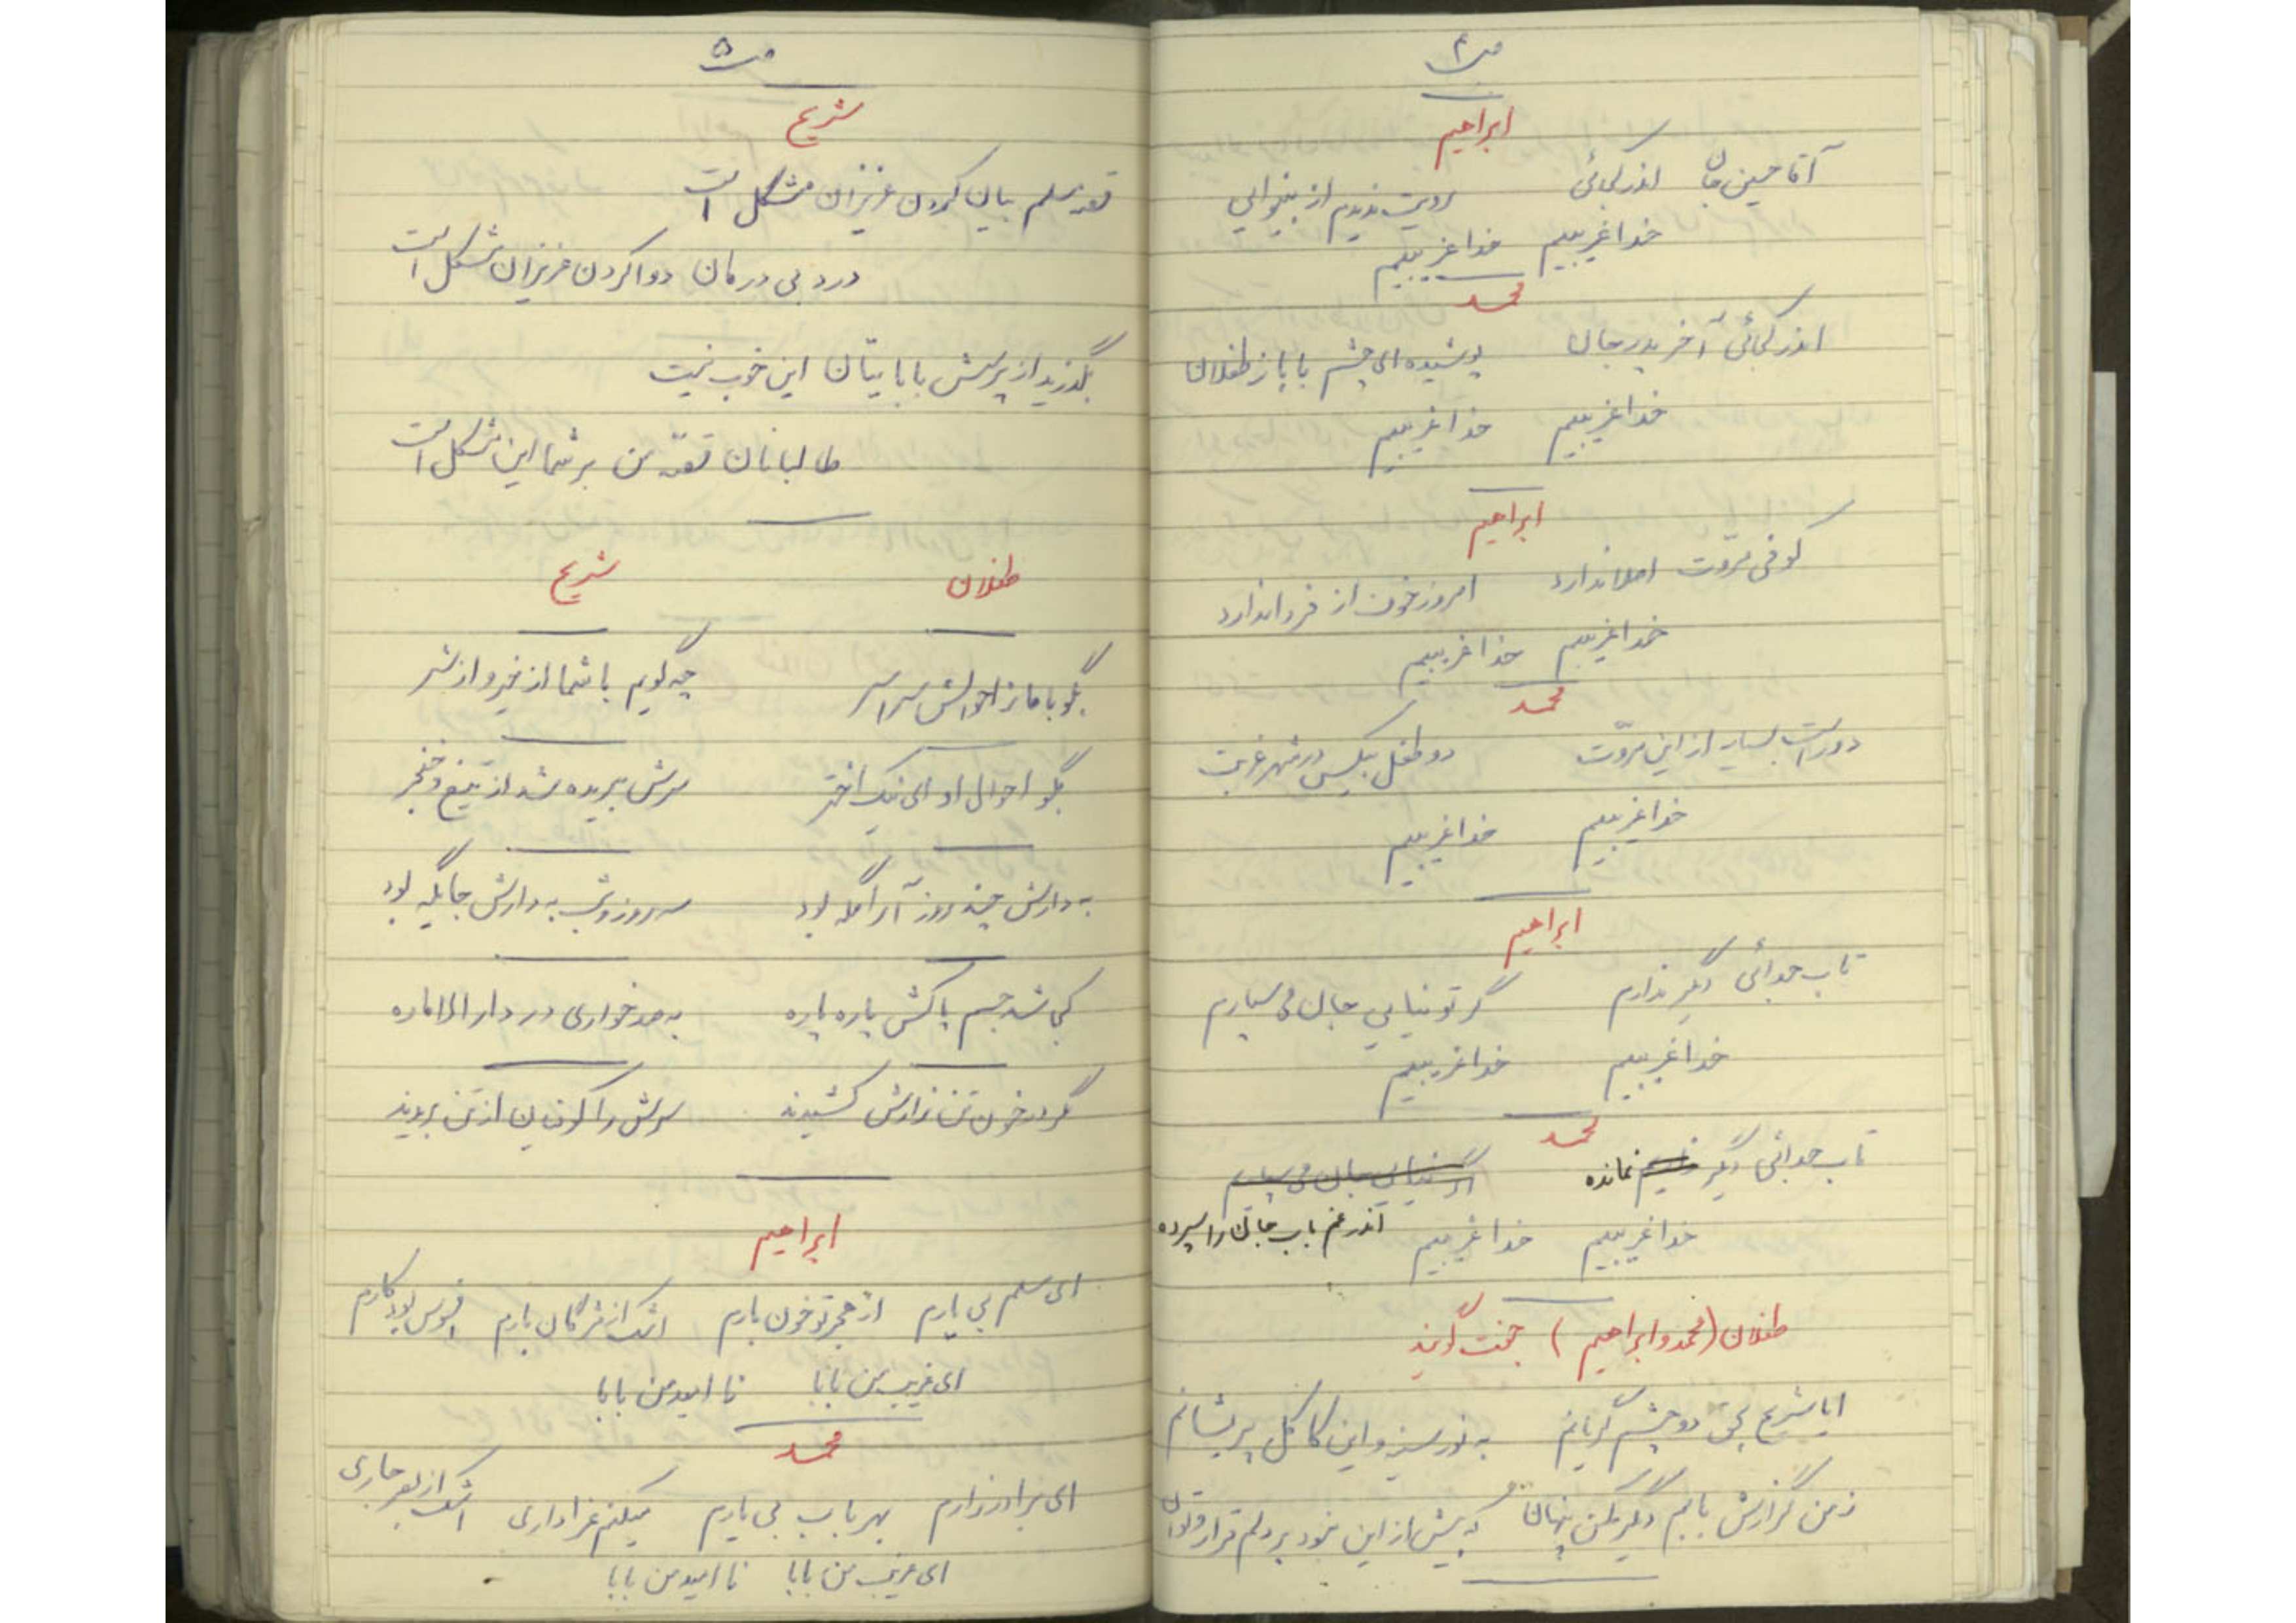 ص۴
ابراهیم
آقا حسین جان اندر کجائی رویت ندیدم از بینوایی
خدا غریبیم خدا غریبیم
محمد
اندر کجائی آخر پدر جان پوشیده ای چشم بابا ز طفلان
خدا غریبیم خدا غریبیم
ابراهیم
کوفی مروّت اصلا ندارد امروز خوف از فردا ندارد
خدا غریبیم خدا غریبیم
محمد
دور است بسیار از این مروّت دو طفل بیکس در شهر غربت
خدا غریبیم خدا غریبیم
ابراهیم
تاب جدائی دیگر ندارم گر تو نیایی جان می سپارم
خدا غریبیم خدا غریبیم
محمد
تاب جدائی دیگر نمانده گر نیایی جان می سپارم
خدا غریبیم خدا غریبیم اندر غم باب جان را سپرده
طفلان (محمد و ابراهیم) جفت گویند
ایا شریح بحق دو چشم گریانم به نور سینه و این کاکل پریشانم
ز من گزارش بابم دگر مکن پنهان که بیش از این نبود بر دلم قرار و توان
ص۵
شریح
قصه مسلم بیان کردن عزیزان مشکل است
درد بی درمان دوا کردن عزیزان مشکل است
بگذرید از پرسش بابایتان این خوب نیست
طالبانان قصّه من بر شما این مشکل است
طفلان شریح
بگو با ما ز احوالش سراسر چه گویم با شما از خیر و از شر
بگو احوال او ای نیک اختر سرش ببریده شد از تیغ و خنجر
به دارش چند روز آرامگه بود سه روز و شب به دارش جایگه بود
کی شد جسم پاکش پاره پاره به صد خواری در دار الاماره
مگر در خون تن زارش کشیدند سرش را کوفیان از تن بریدند
ابراهیم
ای مسلم بی یارم از هجر تو خون بارم اشک از مژگان بارم افسوس بود کارم
ای غریب من بابا نا امید من بابا
محمد
ای برادر زارم بهر باب بی یارم میکنم عزاداری اشک از بصر جاری
ای غریب من بابا نا امید من بابا